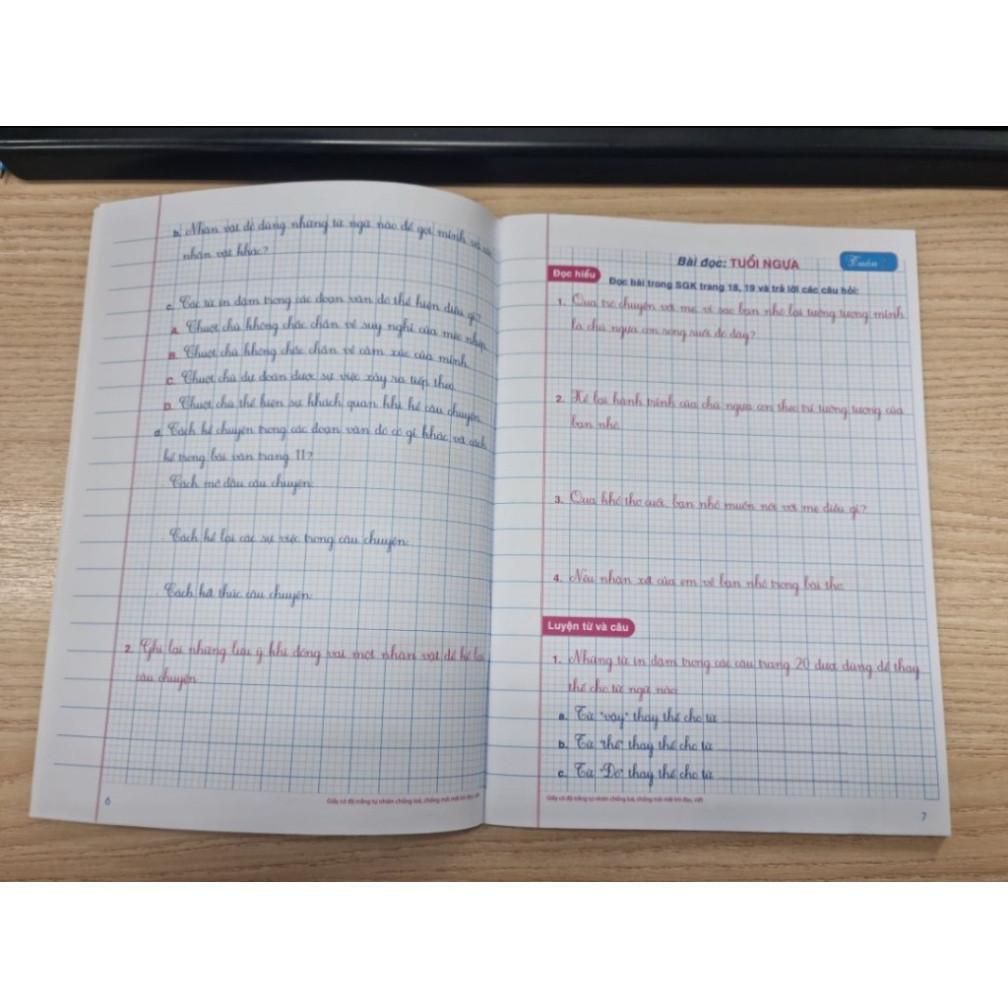 b. Nhân vật đó dùng những từ ngữ nào để gọi mình và các
nhân vật khác?
c. Các từ in đậm trong các đoạn văn đó thể hiện điều gì?
A. Chuột chù không chắc chắn về suy nghĩ của mèo nhép.
B. Chuột chù không chắc chắn về cảm xúc của mình.
C. Chuột chù dự đoán được sự việc xảy ra tiếp theo.
D. Chuột chù thể hiện sự khách quan khi kể câu chuyện.
d. Cách kể chuyện trong các đoạn văn đó có gì khác với cách
kể trong bài văn trang 11?
. Cách mở đầu câu chuyện:
. Cách kể lại các sự việc trong câu chuyện:
. Cách kết thúc câu chuyện:
2. Ghi lại những lưu ý khi đóng vai một nhân vật để kể lại
câu chuyện.
Giấy có độ trắng tự nhiên chống loá, chống mỏi mắt khi đọc, viết
6
Tuần
Bài đọc: TUỔI NGỰA
Đọc hiểu
Đọc bài trong SGK trang 18, 19 và trả lời các câu hỏi:
1. Qua trò chuyện với mẹ, vì sao bạn nhỏ lại tưởng tượng mình
là chú ngựa con rong ruổi đó đây?
2. Kể lại hành trình của chú ngựa con theo trí tưởng tượng của
bạn nhỏ.
3. Qua khổ thơ cuối, bạn nhỏ muốn nói với mẹ điều gì?
4. Nêu nhận xét của em về bạn nhỏ trong bài thơ.
Luyện từ và câu
1. Những từ in đậm trong các câu trang 20 được dùng để thay
thế cho từ ngữ nào:
a. Từ "vậy" thay thế cho từ
b. Từ "thế" thay thế cho từ
c. Từ "Đó" thay thế cho từ
Giấy có độ trắng tự nhiên chống loá, chống mỏi mắt khi đọc, viết
7